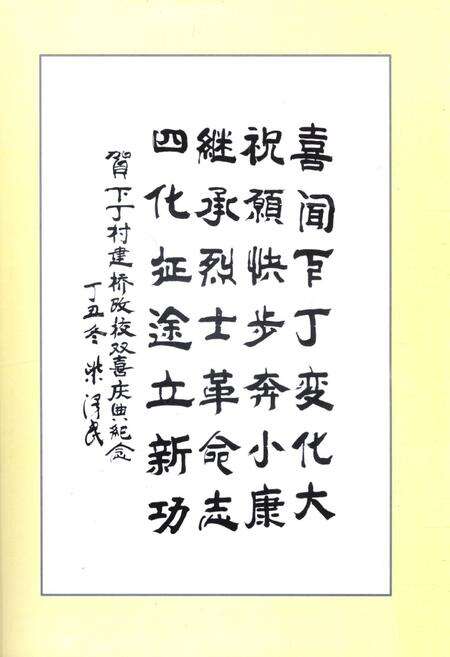 喜闻下丁变化大
祝愿快步奔小康
继承烈士革命志
四化征途立新功
贺下丁村建桥改校双喜庆典纪念
丁丑冬 柴泽民